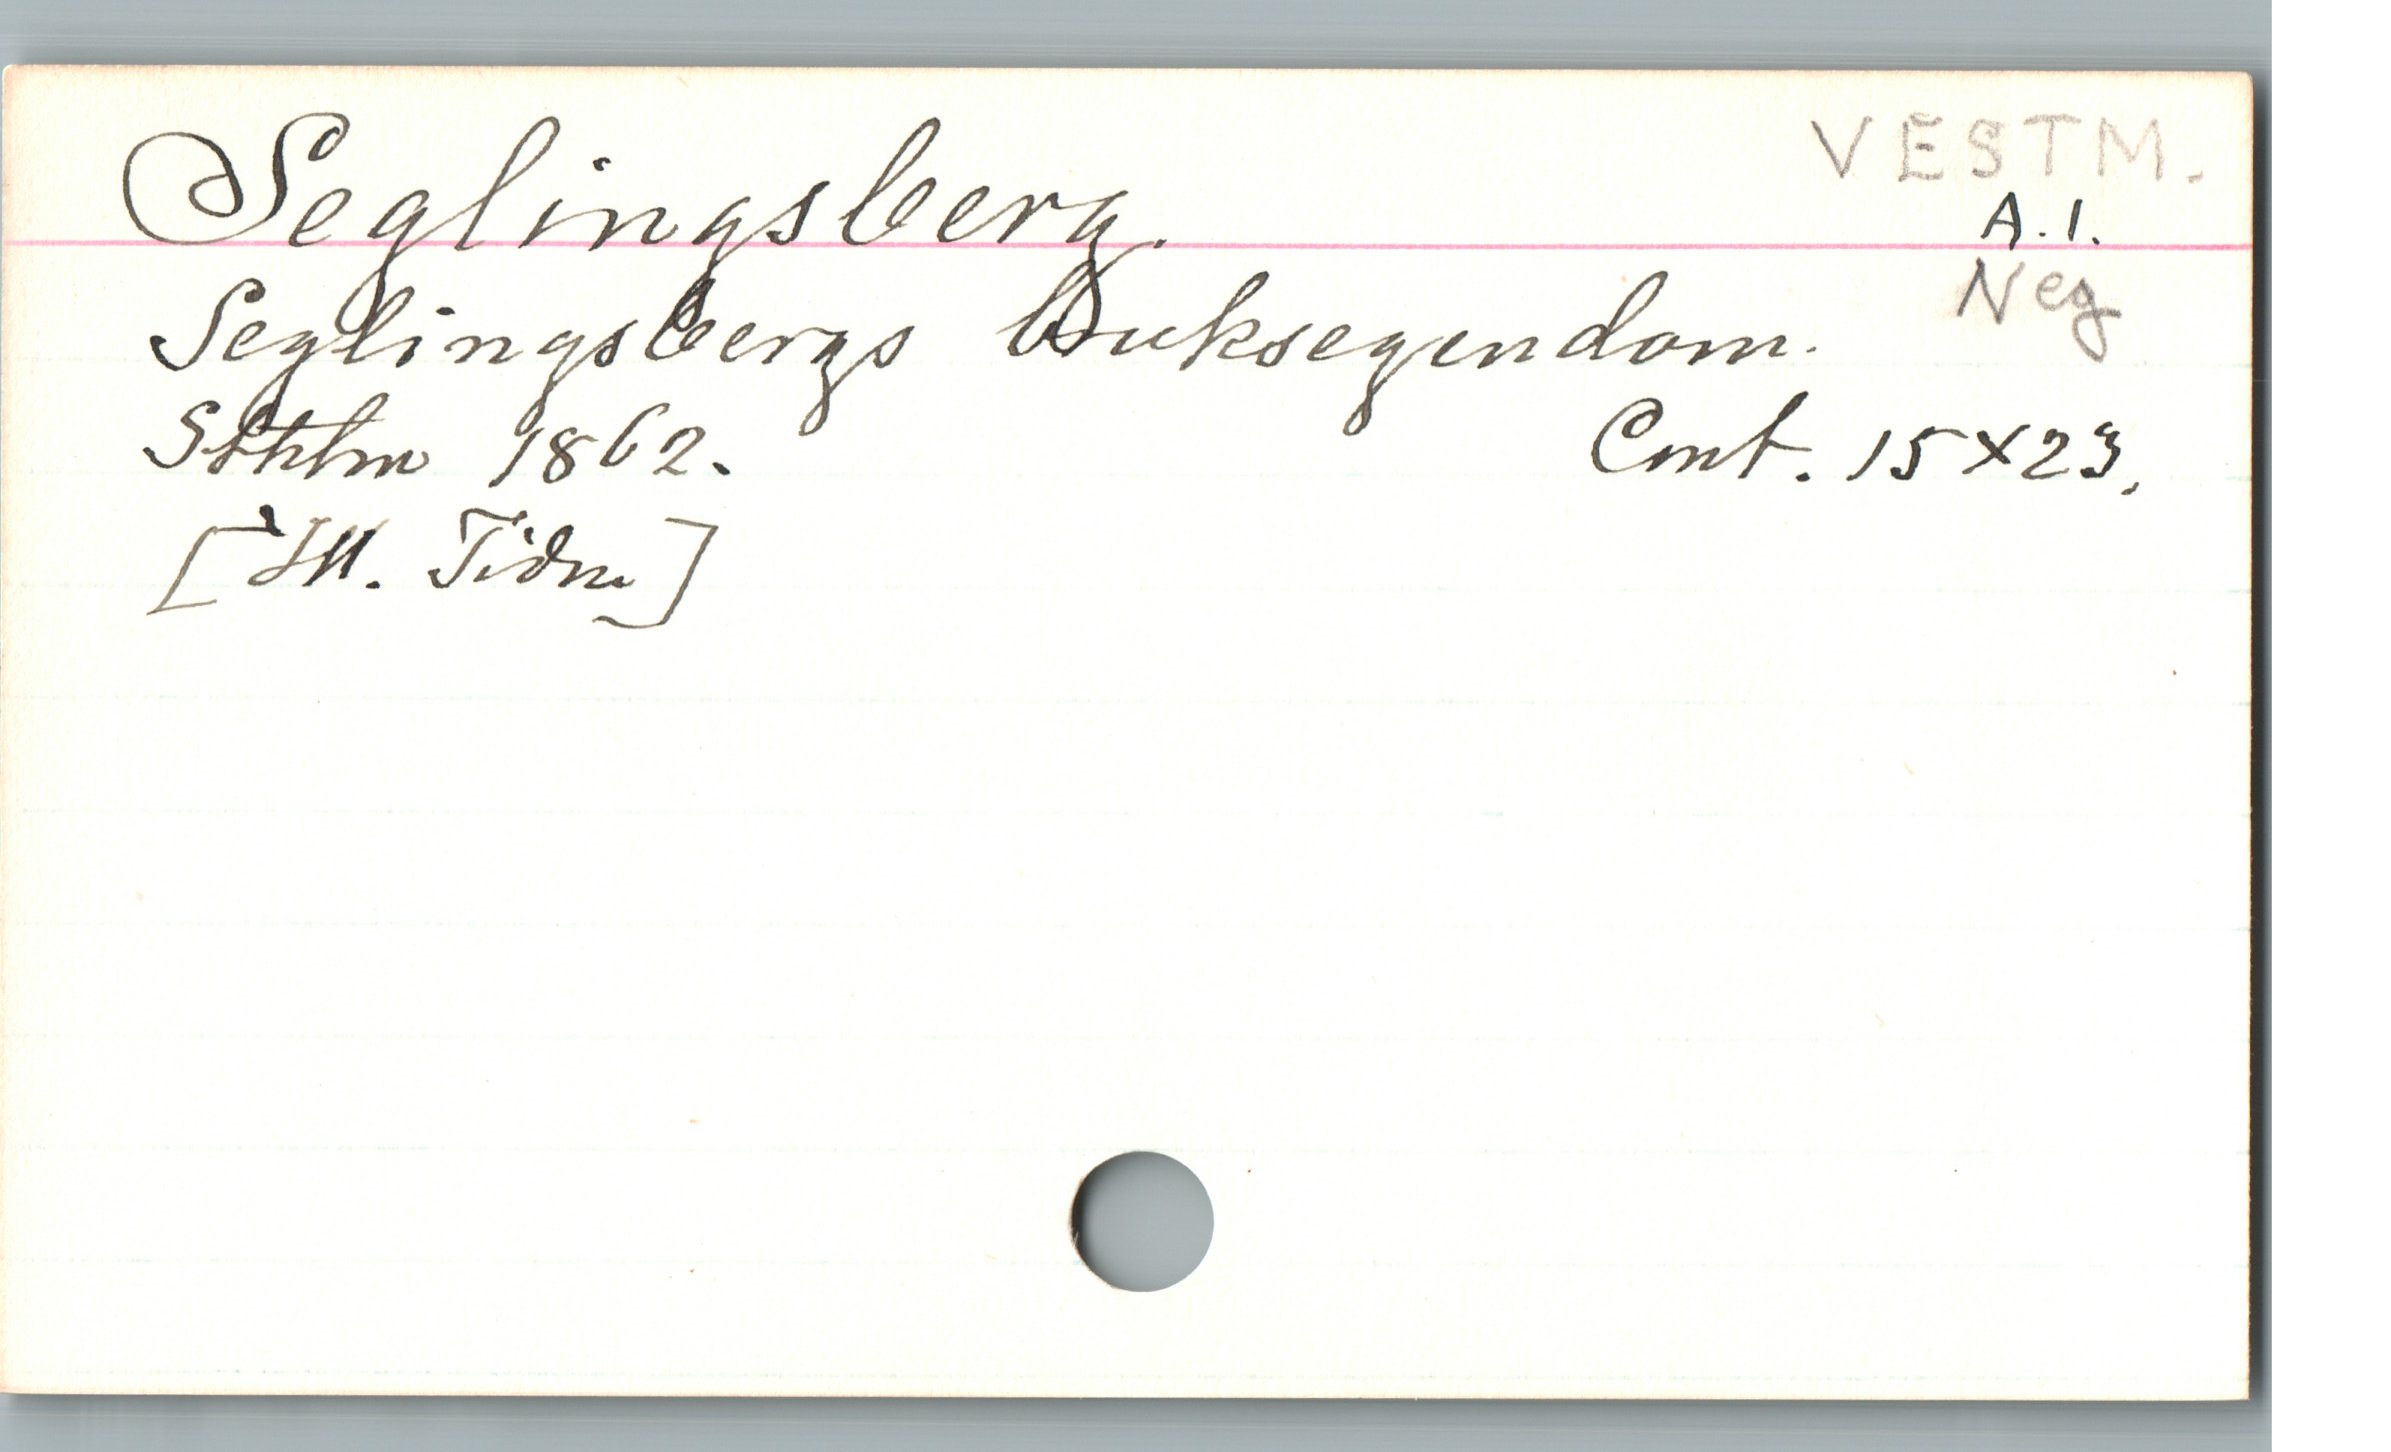 Seglingsberg.
VESTM.
A.1.
Neg
Seglingsbergs bruksegendom.
Sthlm 1862.
Cmt. 15 x 23.
[Ill. Tidn.]